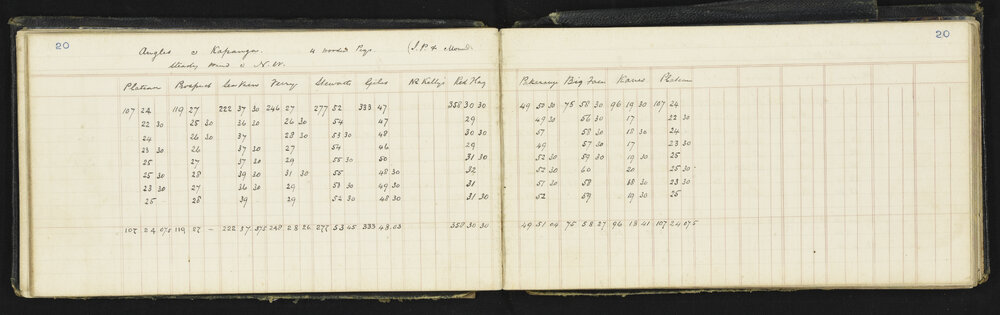 20 20
Angles @ Kapanga. 4 wooded Pegs. (I.P. & Mound.
Steady wind @ N.W.
Plateau Prospect Ferry Stewarts Giles Mt Kelly's Red Flag Big Fern Karws Plateau
107 24 119 27 222 37 30 246 27 277 52 333 47 358 30 30 49 50 30 75 58 30 96 19 30 107 24
22 30 25 30 36 30 26 30 54 47 29 49 30 56 30 17 22 30
24 26 30 37 28 30 53 30 48 30 30 51 58 30 18 30 24
23 30 26 37 30 27 54 46 29 49 57 30 17 23 30
25 27 37 30 29 55 30 50 31 30 52 30 59 30 19 30 25
25 30 28 39 30 31 30 55 48 30 32 52 30 60 20 25 30
23 30 27 36 30 29 53 30 49 30 31 51 30 58 18 30 23 30
25 28 39 29 52 30 48 30 31 30 52 59 19 30 25
107 24 075 119 27 - 222 37 575 246 28 26 277 53 45 333 48.03 358 30 30 49 51 04 75 58 27 96 18 41 107 24 075